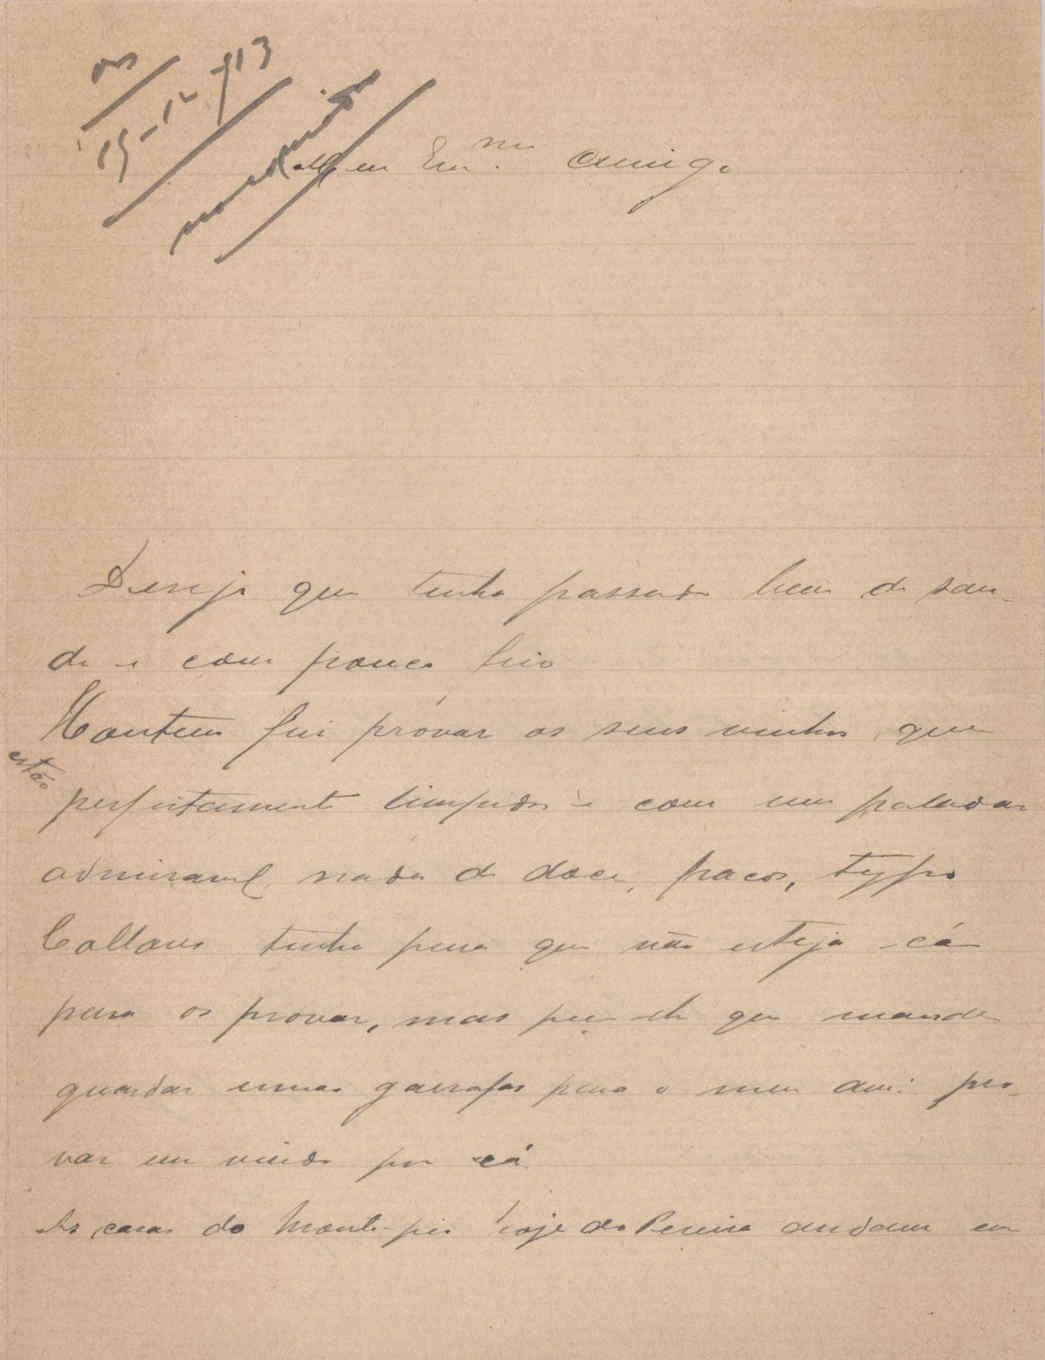 15-12-913
Meu Exmo. Amigo
Desejo que tenha passado bem de sau-
de e com pouco frio
Hontem fui próvar os seus vinhos, que
estão
perfeitamente limpidos e com um paladar
admiravel, nada de doce, fracos, typo
Collares tenho pena que não esteja cá
para os provar, mas que mande
guardar umas garrafas para o meu ami: pro-
var em vindo por cá.
As casas do Monte-pio hoje do Pereira andam em